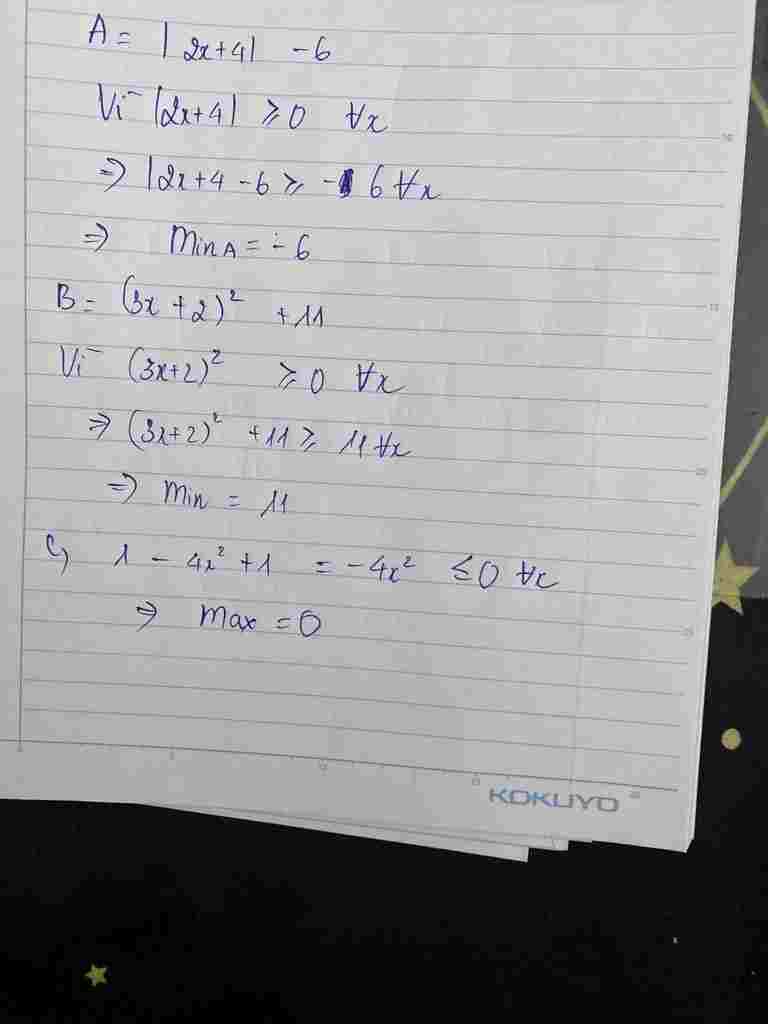 A = |2x+4| -6
Vì |2x+4| ⩾0 ∀x
=> |2x+4 -6 ⩾ -6 ∀x
=> Min A = -6
B = (3x+2)² +11
Vì (3x+2)² ⩾0 ∀x
=> (3x+2)² +11 ⩾ 11 ∀x
=> Min = 11
C, 1 - 4x² +1 = -4x² ≤0 ∀x
=> Max = 0
KOKUYO